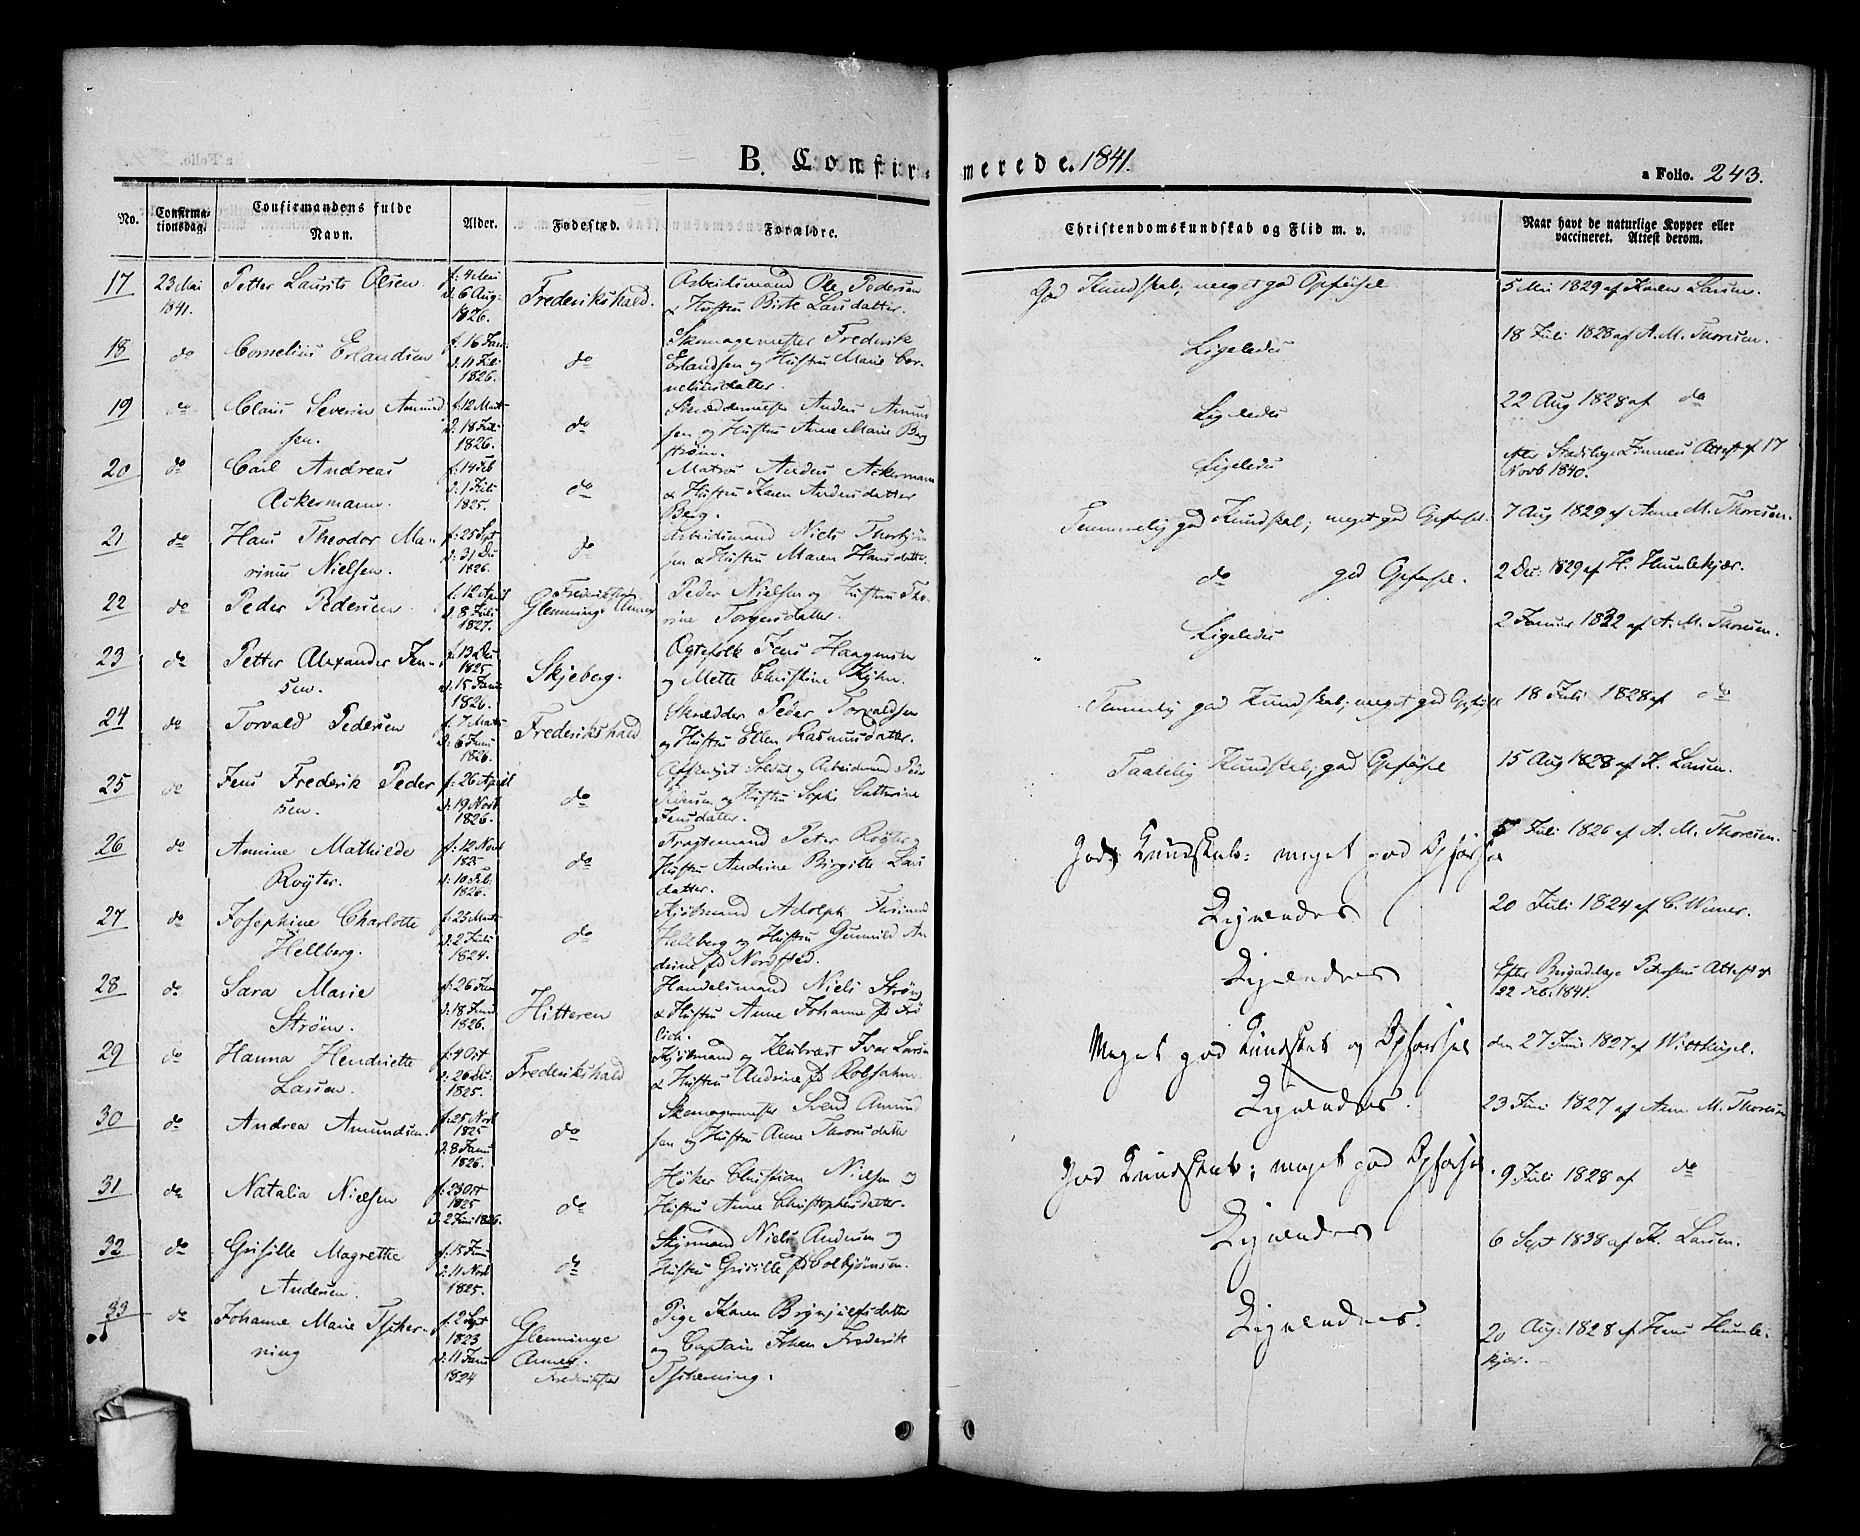 B. Confir- merede. 1841.
a Folio. 243.
No. Confirma- tionsdag. Confirmandens fulde Navn. Alder. Fødested. Forældre. Christendomskundskab og Flid m. v. Naar havt de naturlige Kopper eller vaccineret. Attest derom.
17 23 Mai 1841. Petter Laurits Olsen. f: 4 Mai d. 6 Aug: 1826. Frederikshald. Arbeidsmand Ole Pedersen & Hustru Birte Larsdatter. God Kundskab; meget god Opførsel 5 Mai 1829 af Karen Larsen.
18 do Cornelius Erlandsen f: 16 Jan: d. 11 1826. do Skomagermester Frederik Erlandsen og Hustru Marie Cor- neliusdatter. Ligeledes 18 Juli 1828 af A. M. Thoresen.
19 do Claus Severin Amund sen. f: 12 Marts d. 18 Juli 1826. do Skræddermester Anders Amund sen og Hustru Anne Marie Berg strøm. Ligeledes 22 Aug 1828 af do
20 do Carl Andreas Ackermann. 1825. do Matros Anders Ackermann & Hustru Karen Andersdatter Berg. Ligeledes efter Attest af 17 Novb 1840.
21 do Hans Theodor Ma- rinus Nielsen. f: 25 Sept d. 31 De 1826. do Arbeidsmand Niels Thorbjørn sen & Hustru Maren Hansdatter Temmelig god Kundskab; meget god Opførsel. 7 Aug 1829 af Anne M. Thoresen.
22 do Peder Pedersen. f. 12 April d. 8 Juli 1827. Glemminge Annex Peder Nielsen og Hustru Tho- rine Torgersdatter. do god Opførsel. 2 Dec: 1829 af H. Humlekjær.
23 do Petter Alexander Jen- sen. f. 13 De 1825 d. 15 Janu 1826. Skjeberg. Ægtefolk Jens Haagensen og Mette Christine Ligeledes 2 Januar 1832 af A. M. Thoresen.
24 do Torvald Pedersen f. 7 Marts d. 6 Juni 1826. Frederikshald Skrædder Peder Torvaldsen og Hustru Ellen Rasmusdatter. Temmelig god Kundskab; meget god Opførsel 18 Juli 1828 af do
25 do Jens Frederik Peder sen. f. 26 April d. 19 Novb 1826. do Afskediget Soldat og Arbeidsmand Peder Pedersen og Hustru Sophi Cathrine Jensdatter. Taalelig Kundskab; god Opførsel 15 Aug 1828 af K. Larsen.
26 do Annine Mathilde Røyter. f. 12 Novb 1825 d. 10 Feb: 1826. do Fragtemand Peter Røyter, Hustru Andrine Birgitte Lars datter. God Kundskab: meget god Opførsel 5 Juli 1826 af A. M. Thoresen.
27 do Josephine Charlotte Hellberg. f. 25 Marts d. 2 Juli 1824. do Kjøbmand Adolph Hellberg og Hustru Gunnild An drine fd Nordsted. Ligeledes 20 Juli 1824 af C.
28 do Sara Marie Strøm. f. 26 Jan d. 18 Juni 1826. Hitteren Handelsmand Niels Strøm & Hustru Anne Johanne fd Frø lich. Ligeledes Efter Brigadelæge Petersens Attest af 22 Feb: 1841.
29 do Hanna Hendriette Larsen. f. 4 Oct d. 26 De: 1825. Frederikshald Kjøbmand og Ivar Larsen & Hustru Andrine fd Kolsjahn. Meget god Kundskab og Opførsel den 27 Juni 1827 af Wittkugel.
30 do Andrea Amundsen. f. 25 Novb 1825 d. 8 Janu 1826. do Skomagermester Svend Amund sen og Hustru Anne Taronsdatter Ligeledes. 23 Juni 1827 af Anne M. Thoresen
31 do Natalia Nielsen f. 23 Oct 1825 d. 2 Juni 1826. do Høker Christian Nielsen og Hustru Anne Christophersdatter. God Kundskab; meget god Opførsel. 9 Juli 1828 af do
32 do Grisille Magrethe Andersen. f. 15 Juni d. 11 Novb 1825. do Niels Andersen og Hustru Grisille fd Colbjørnsen. Ligeledes 6 Sept 1838 af K. Larsen.
33 do Johanne Marie Tscher- ning f. 2 Sept 1823 d. 11 Janu 1824 Glemminge Annex. Pige Karen Brynjulfsdatter og Captain Johan Frederik Tscherning. Ligeledes. 20 Aug: 1828 af Hans Humle- kjær.